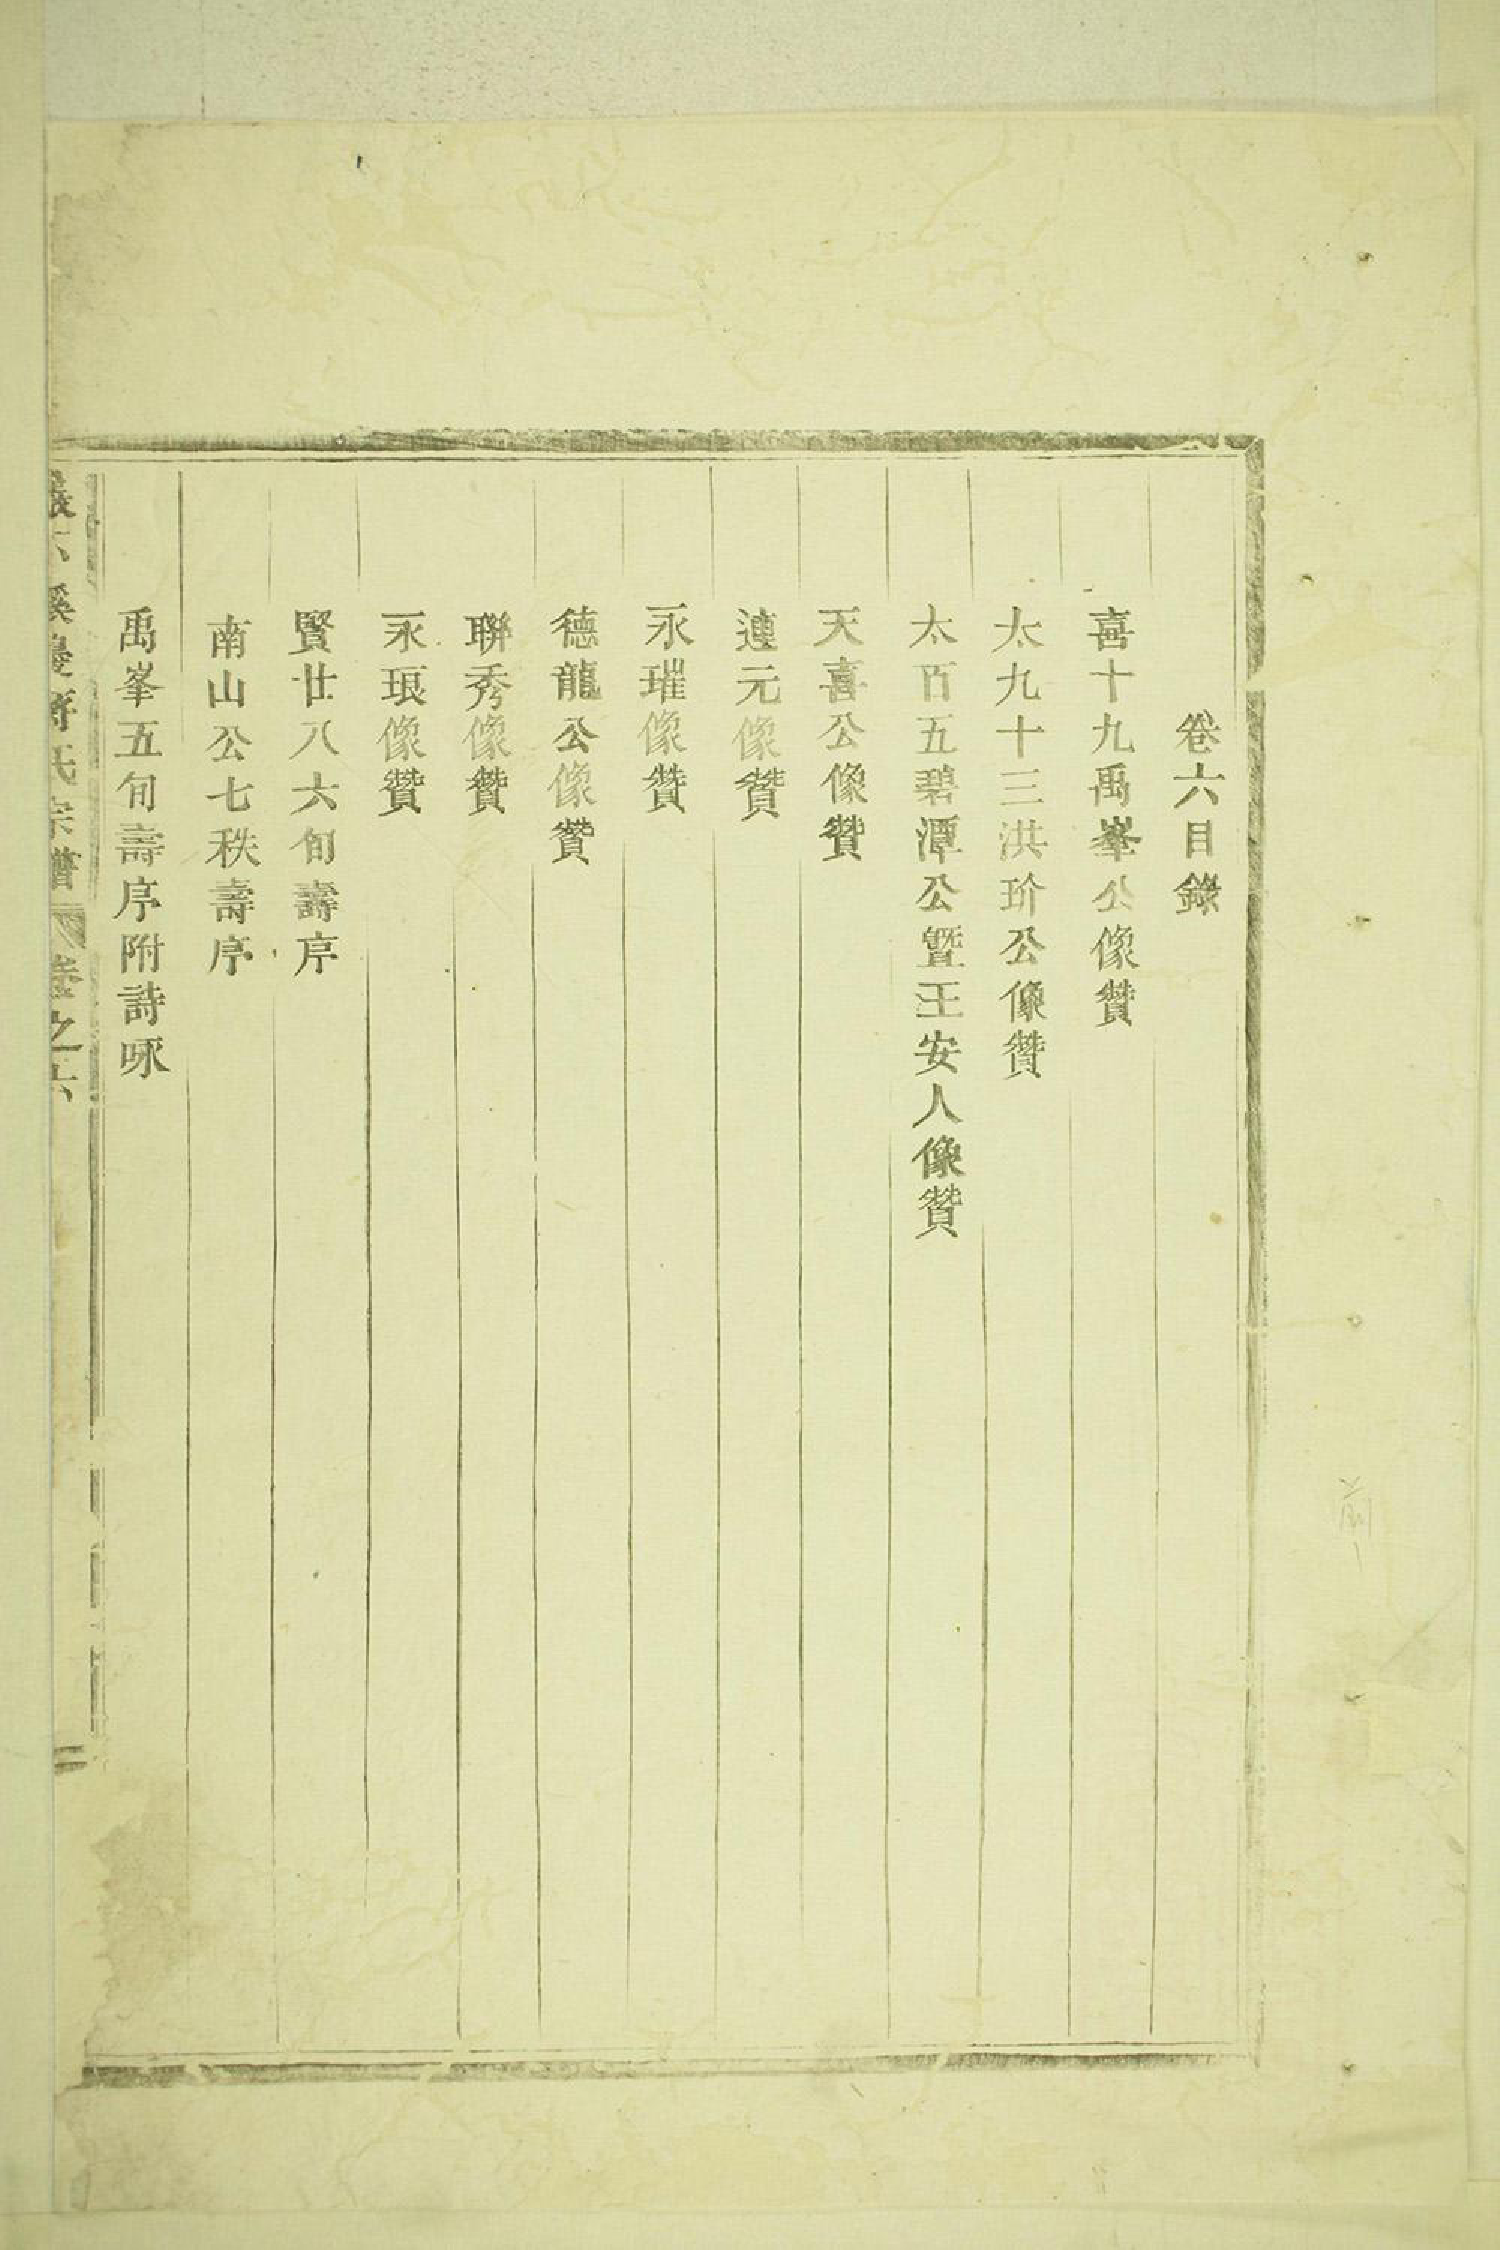 卷六目錄
喜十九禹峯公像贊
太九十三洪玠公像贊
太百五碧潭公暨王安人像贊
天喜公像贊
連元像贊
永璀像贊
德龍公像贊
聯秀像贊
永琅像贊
賢廿八六旬壽序
南山公七秩壽序
禹峯五旬壽序附詩啄
氏宗譜 卷之六 二